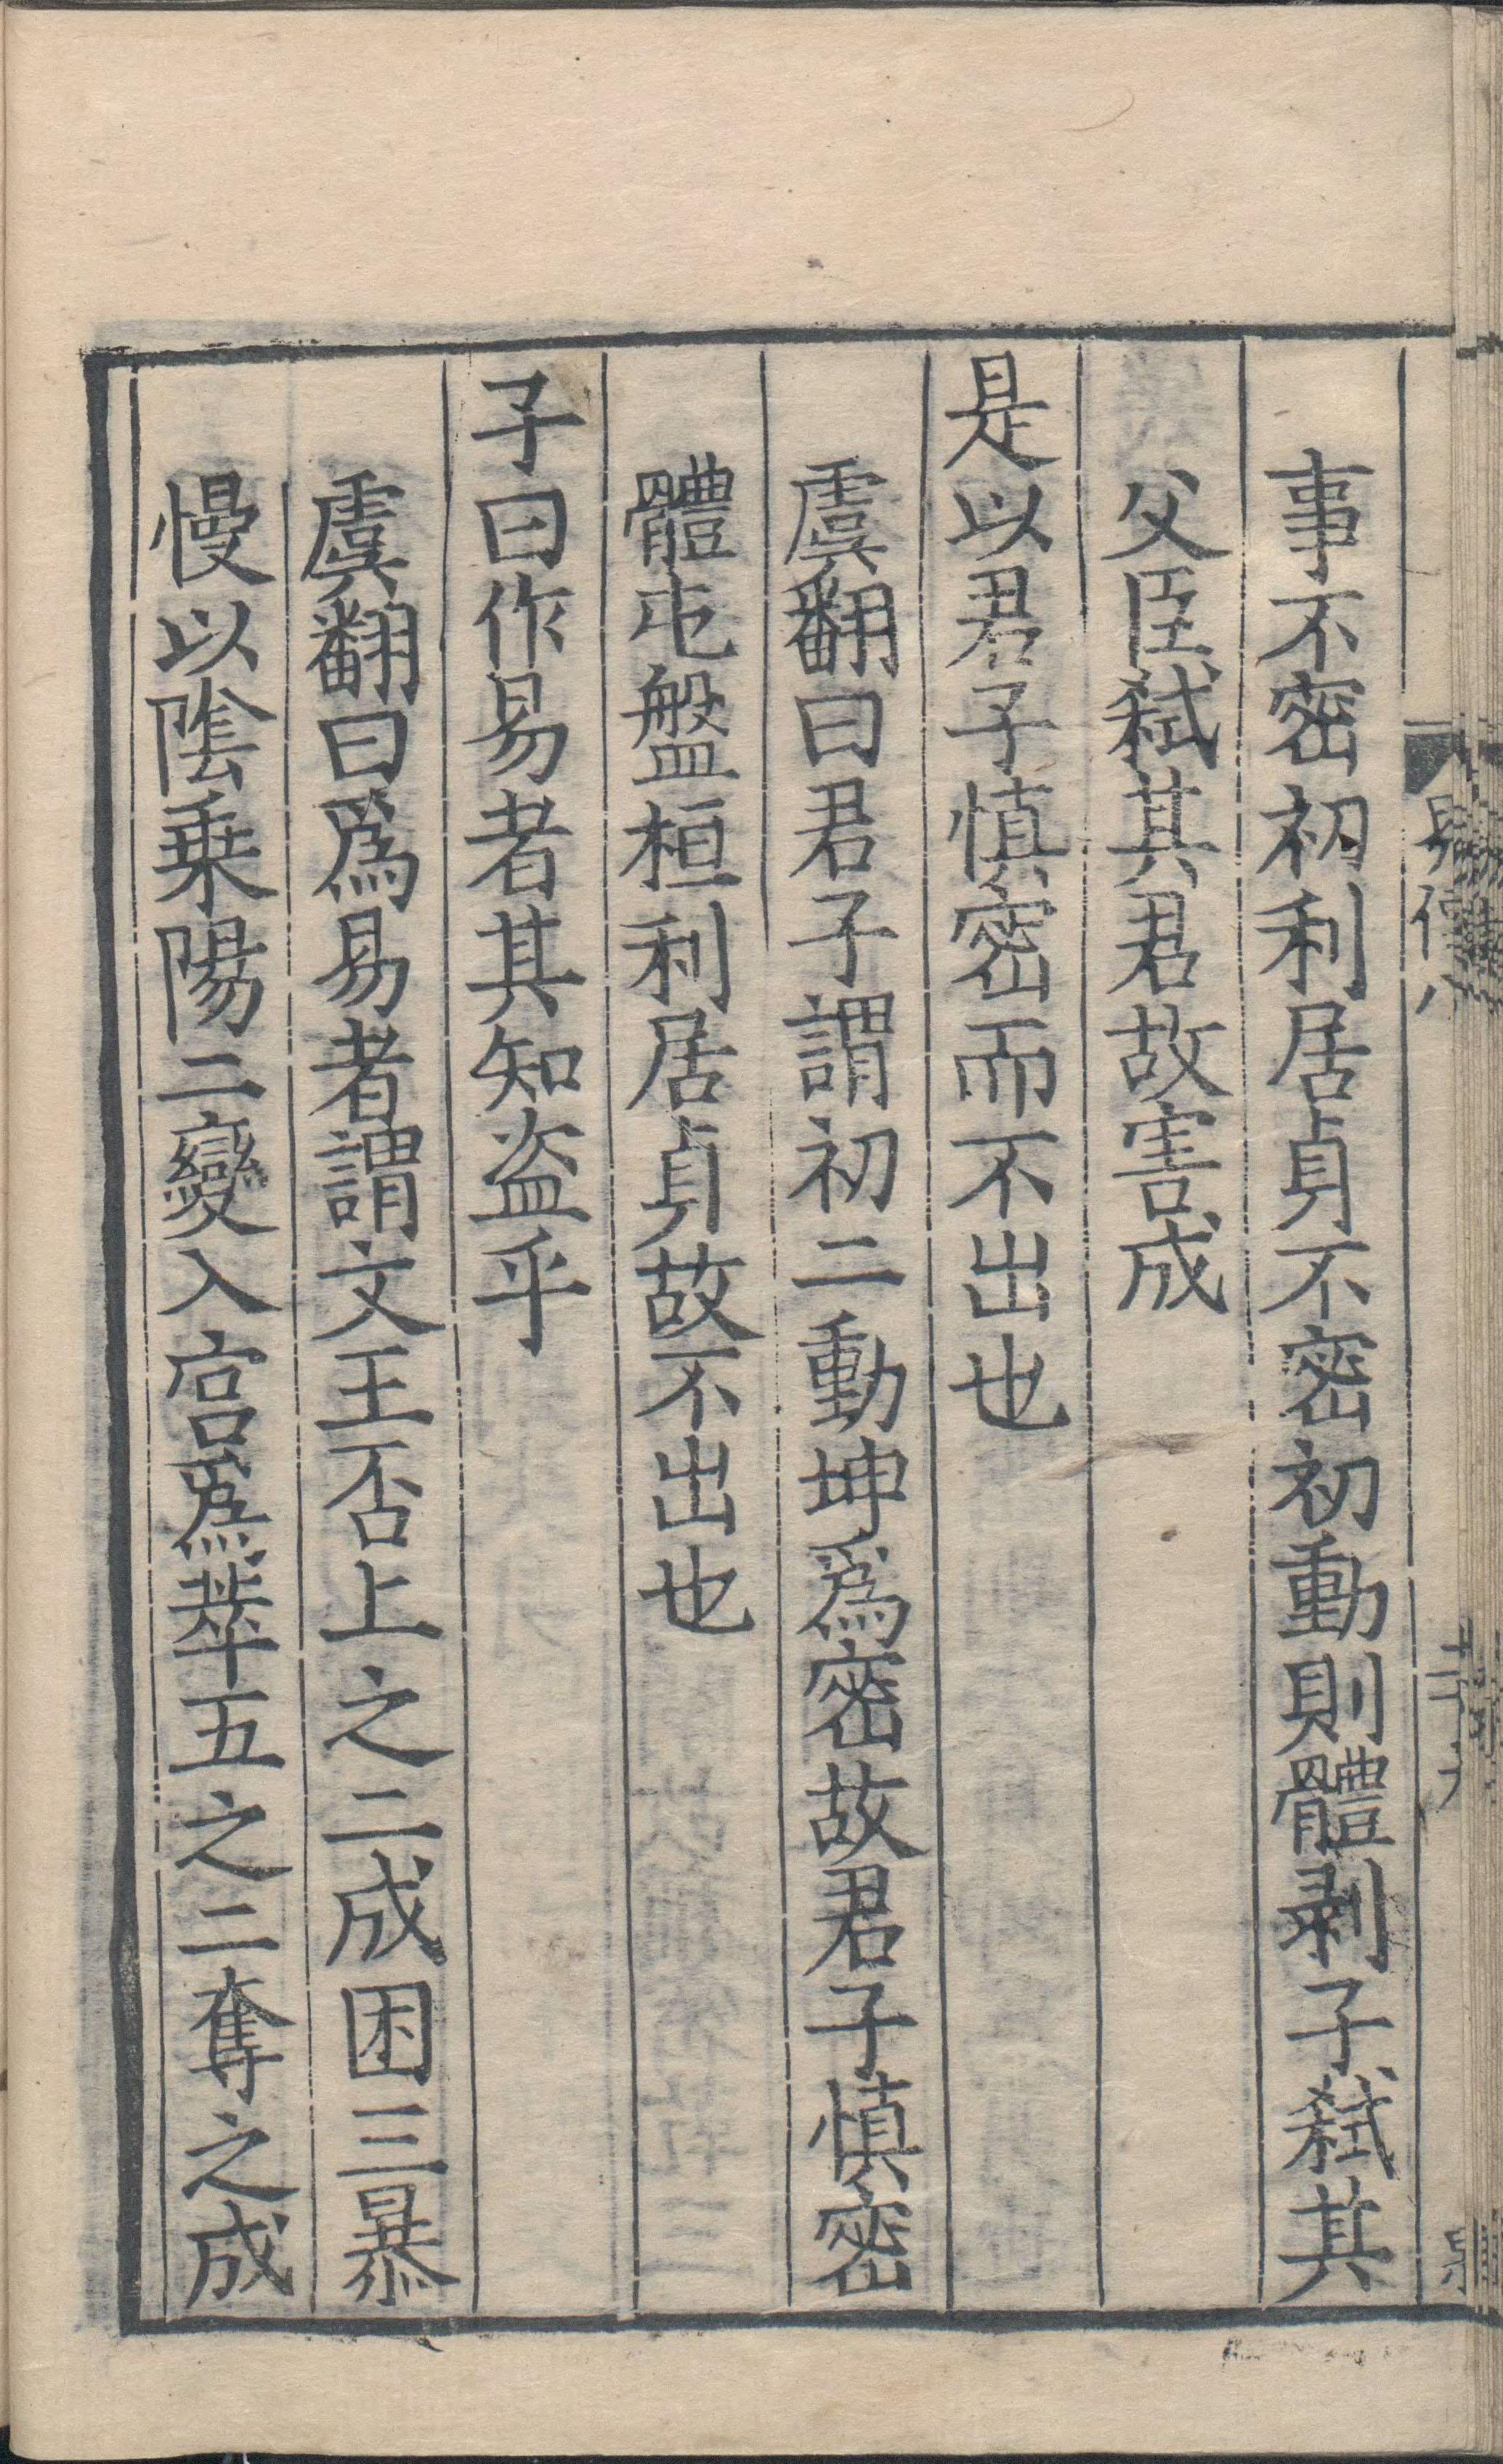 事不密初利居貞不密初動則體剥子弑其
父臣弑其君故害成
是以君子慎密而不出也
虞翻曰君子謂初二動坤爲密故君子慎密
體屯盤桓利居貞故不出也
子曰作易者其知盗乎
虞翻曰爲易者謂文王否上之二成困三暴
慢以隂乗陽二變入宫爲萃五之二奪之成